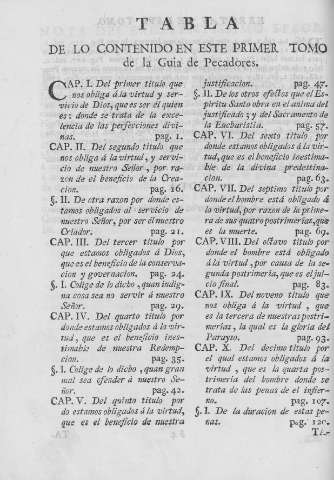 TABLA
DE LO CONTENIDO EN ESTE PRIMER TOMO
de la Guia de Pecadores.
CAP. I. Del primer titulo que
nos obliga á la virtud y ser-
vicio de Dios, que es ser él quien
es: donde se trata de la exce-
lencia de las perfecciones divi-
nas. pag. 1.
CAP. II. Del segundo titulo que
nos obliga á la virtud, y servi-
cio de nuestro Señor, por ra-
zon de el beneficio de la Crea-
cion. pag. 16.
§. II. De otra razon por donde es-
tamos obligados al servicio de
nuestro Señor, por ser él nuestro
Criador. pag. 21.
CAP. III. Del tercer titulo por
que estamos obligados á Dios,
que es el beneficio de la conserva-
cion y governacion. pag. 24.
§. I. Colige de lo dicho, quan indig-
na cosa sea no servir á nuestro
Señor. pag. 29.
CAP. IV. Del quarto titulo por
donde estamos obligados á la vir-
tud, que es el beneficio ines-
timable de nuestra Redemp-
cion. pag. 35.
§. I. Colige de lo dicho, quan gran
mal sea ofender á nuestro Se-
ñor. pag. 42.
CAP. V. Del quinto titulo por
do estamos obligados á la virtud,
que es el beneficio de nuestra
justificacion. pag. 47.
§. II. De los otros efectos que el Es-
piritu Santo obra en el anima del
justificado; y del Sacramento de
la Eucharistia. pag. 57.
CAP. VI. Del sexto titulo por
donde estamos obligados á la vir-
tud, que es el beneficio inestima-
ble de la divina predestina-
cion. pag. 63.
CAP. VII. Del septimo titulo por
donde el hombre está obligado á
la virtud, por razon de la prime-
ra de sus quatro postrimerías, que
es la muerte. pag. 69.
CAP. VIII. Del octavo titulo por
donde el hombre está obligado
á la virtud, por causa de la se-
gunda postrimería, que es el jui-
cio final. pag. 83.
CAP. IX. Del noveno titulo que
nos obliga á la virtud, que
es la tercera de nuestras postri-
merías, la qual es la gloria del
Parayso. pag. 93.
CAP. X. Del decimo titulo por
el qual estamos obligados á la
virtud, que es la quarta pos-
trimería del hombre donde se
trata de las penas de el infier-
no. pag. 107.
§. I. De la duracion de estas pe-
nas. pag. 120.
Ti-